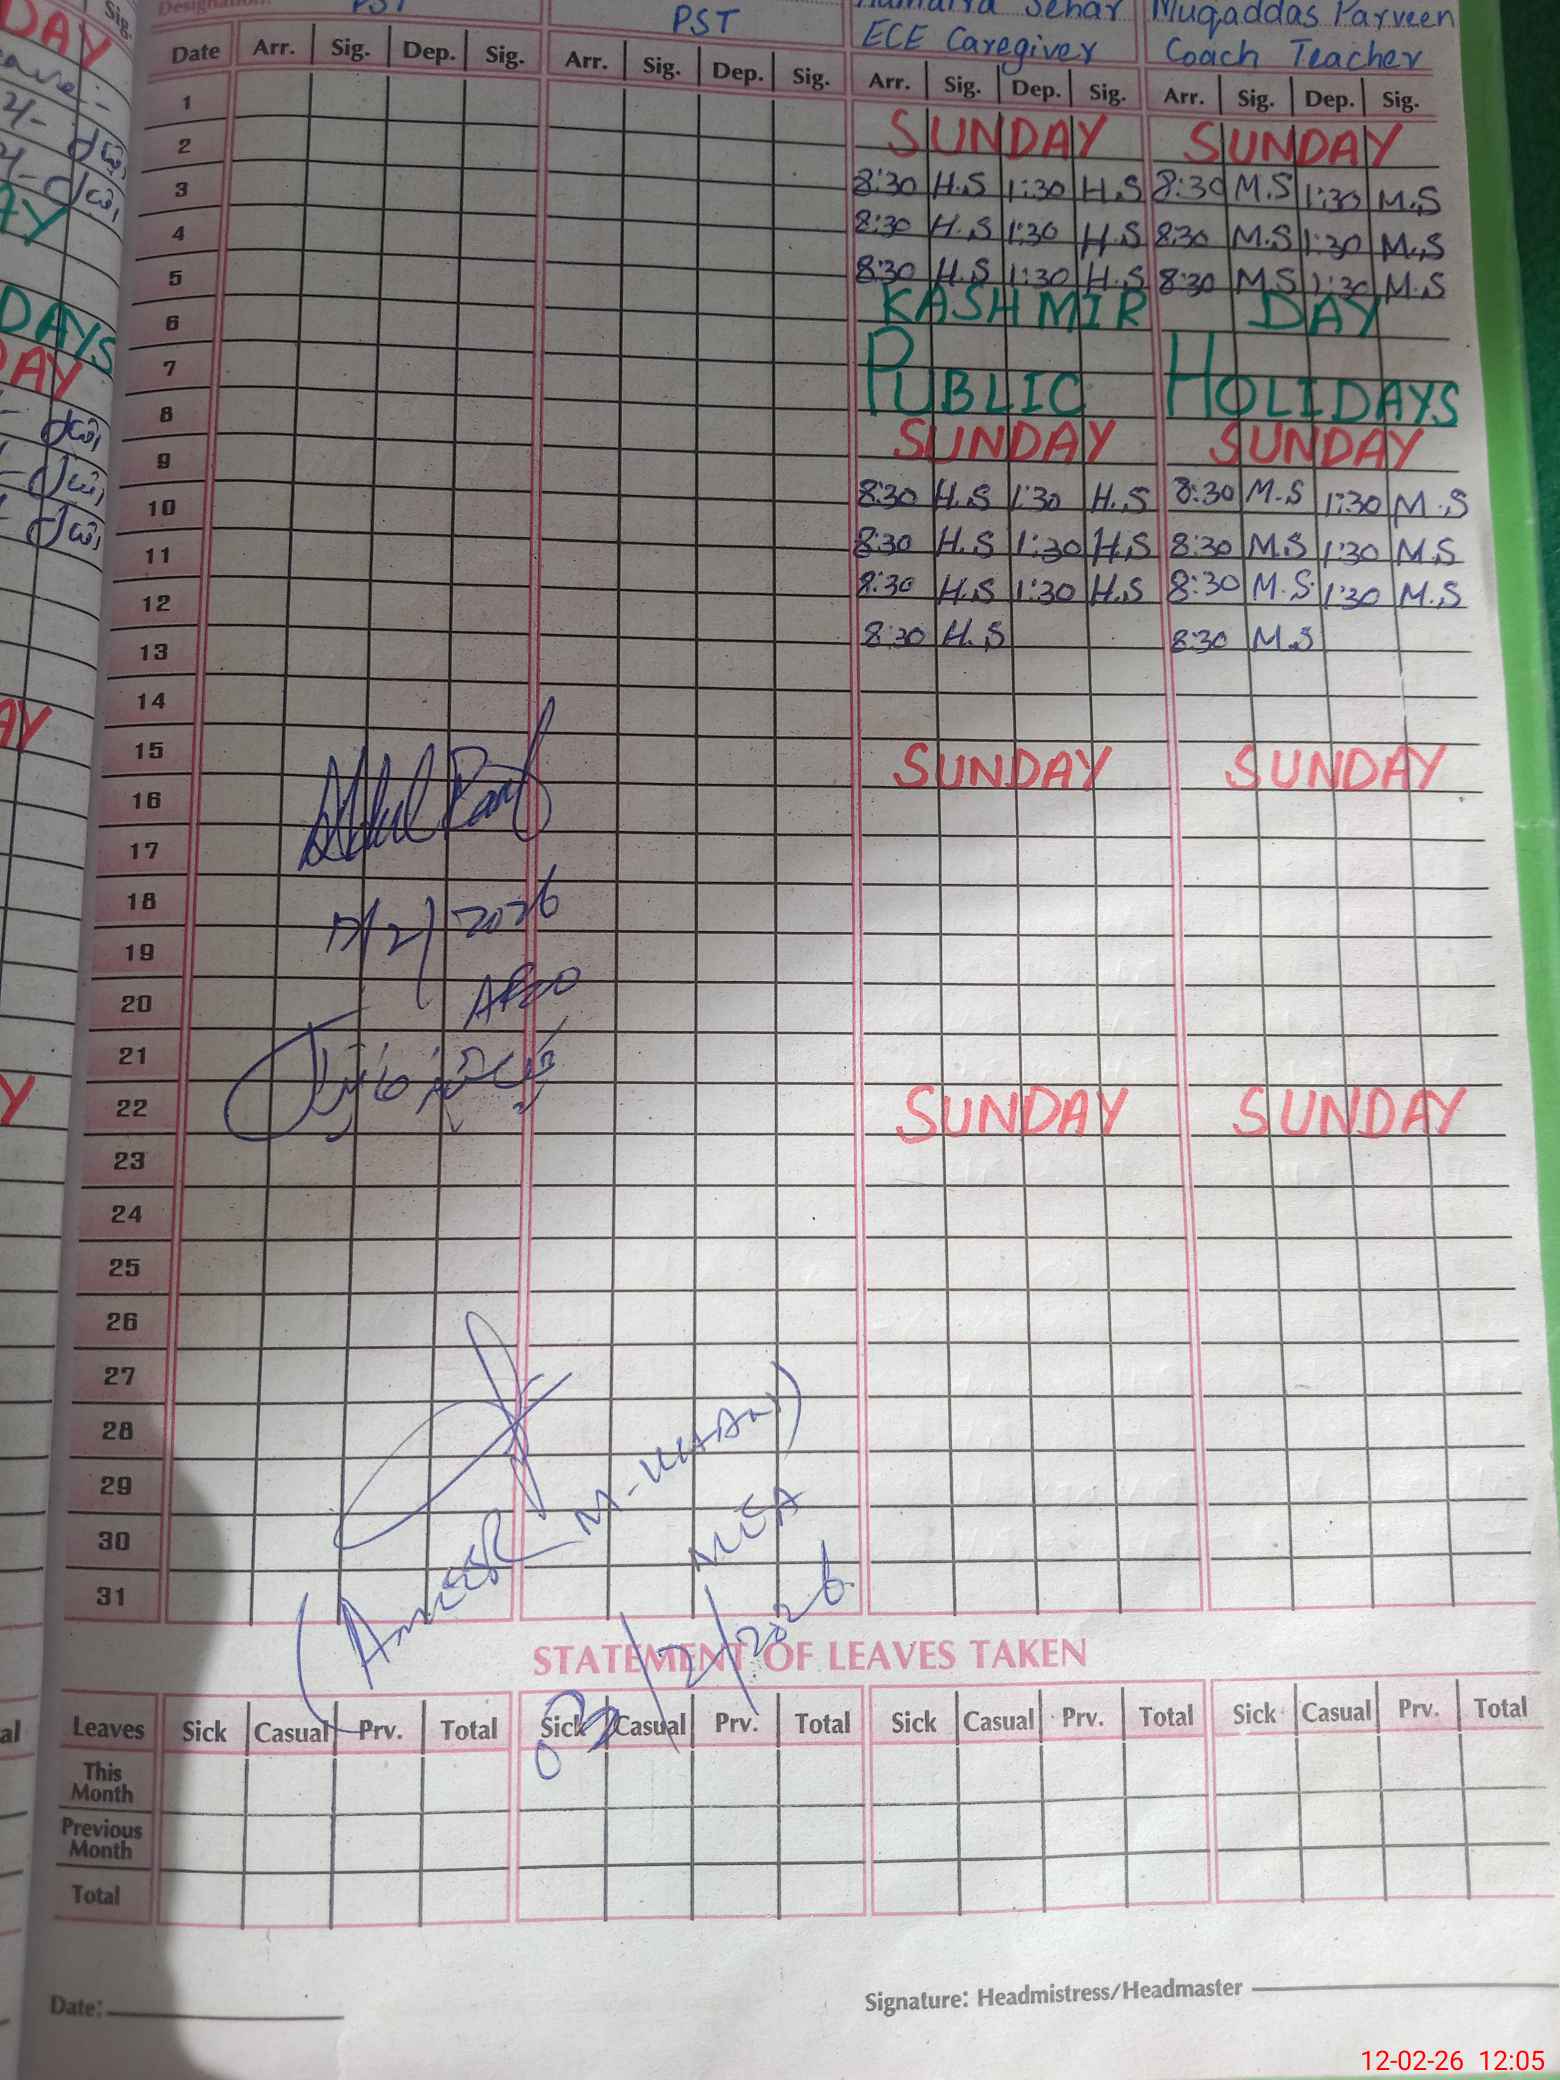 Designation: PST
PST
Humaira Sehar
ECE Caregiver
Muqaddas Parveen
Coach Teacher
Sig.
Date Arr. Sig. Dep. Sig. Arr. Sig. Dep. Sig. Arr. Sig. Dep. Sig. Arr. Sig. Dep. Sig.
1 SUNDAY SUNDAY
2 8:30 H.S 1:30 H.S 8:30 M.S 1:30 M.S
3 8:30 H.S 1:30 H.S 8:30 M.S 1:30 M.S
4 8:30 H.S 1:30 H.S 8:30 M.S 1:30 M.S
5 KASHMIR DAY
6
7 PUBLIC HOLIDAYS
8 SUNDAY SUNDAY
9 8:30 H.S 1:30 H.S 8:30 M.S 1:30 M.S
10 8:30 H.S 1:30 H.S 8:30 M.S 1:30 M.S
11 8:30 H.S 1:30 H.S 8:30 M.S 1:30 M.S
12 8:30 H.S 8:30 M.S
13
14
15 SUNDAY SUNDAY
16
17
18
19
20
21
22 SUNDAY SUNDAY
23
24
25
26
27
28
29
30
31
DAY
AY
DAYS
DAY
AY
Y
12/2/2026
(Ameer M-Khan)
/2/2026
STATEMENT OF LEAVES TAKEN
Leaves Sick Casual Prv. Total Sick Casual Prv. Total Sick Casual Prv. Total Sick Casual Prv. Total
This Month
Previous Month
Total
Date:
Signature: Headmistress/Headmaster
12-02-26 12:05